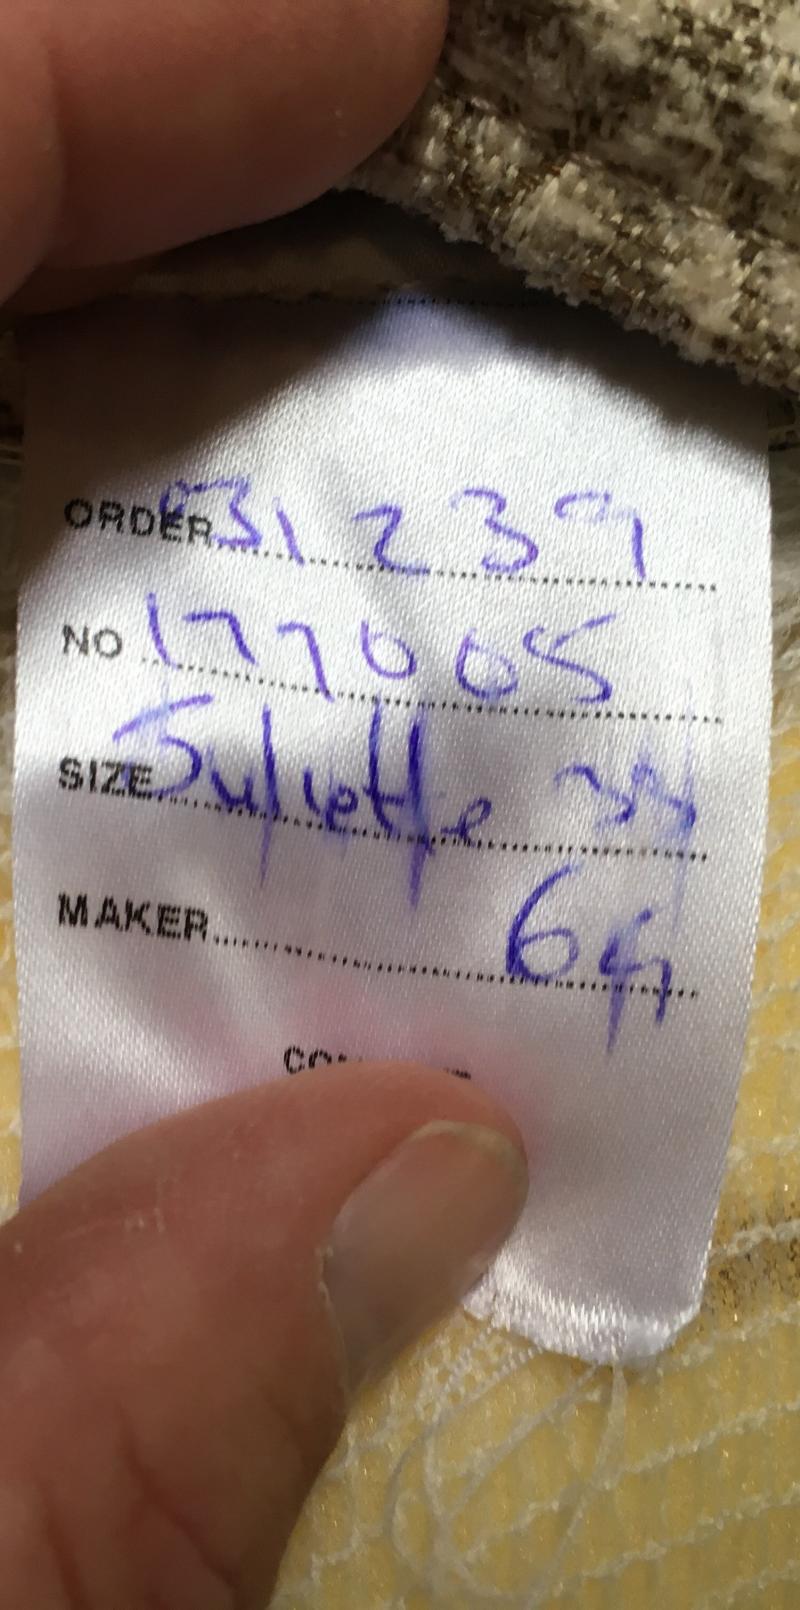 ORDER 031239
NO 177005
SIZE Juliette
MAKER 64